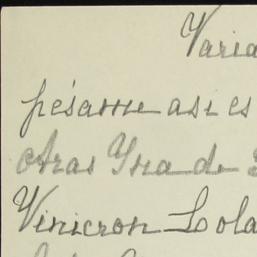 Varia
pésame asi es
otras Yna de
Vinicron Lola